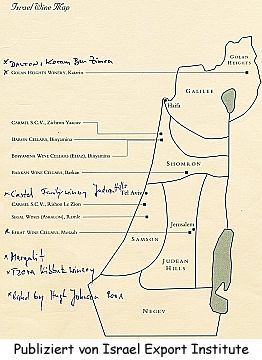 Israel Wine Map
× DALTON; Kerem Ben Zimra
× GOLAN HEIGHTS WINERY, Katzrin
GOLAN HEIGHTS
GALILEE
Haifa
CARMEL S.C.V., Zichron Yaacov
BARON CELLARS, Binyamina
BINYAMINA WINE CELLARS (ELIAZ), Binyamina
SHOMRON
BARKAN WINE CELLARS, Barkan
× Castel Family winery Judean Hills
Tel Aviv
CARMEL S.C.V., Rishon Le Zion
SEGAL WINES (ASKALON), Ramle
Jerusalem
× EFRAT WINE CELLARS, Motzah
SAMSON
JUDEAN HILLS
× Margalit
× TZORA Kibbutz winery
× listed by Hugh Johnson 2001
NEGEV
Publiziert von Israel Export Institute